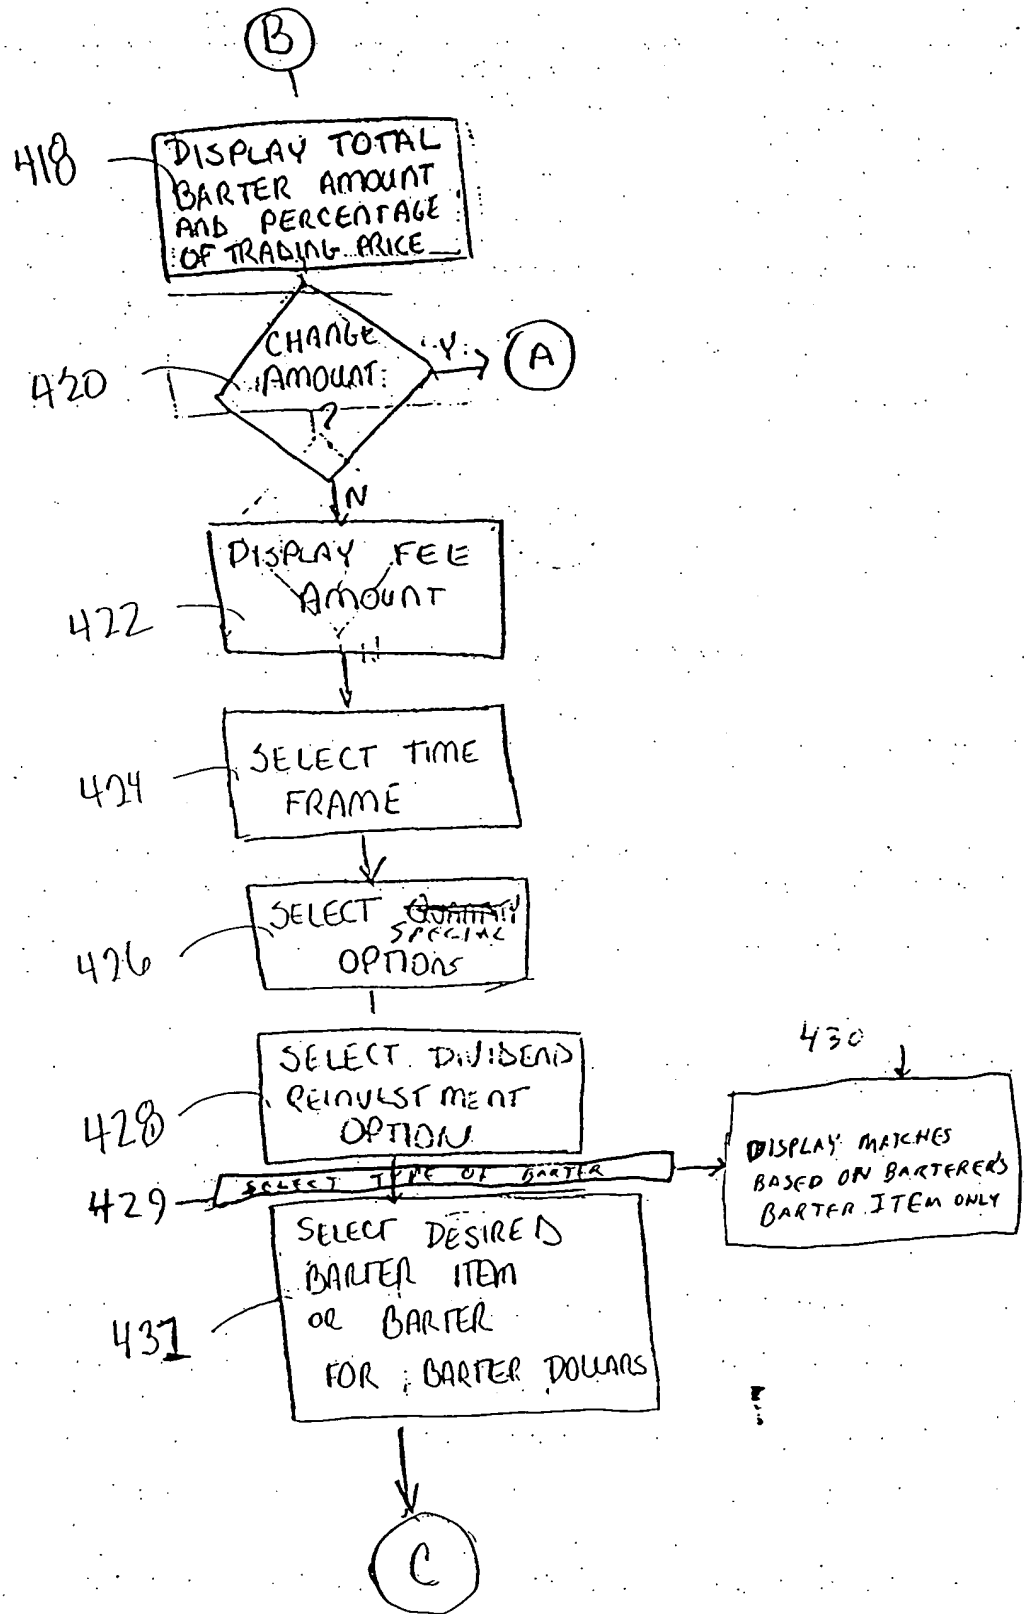 B
418
DISPLAY TOTAL
BARTER AMOUNT
AND PERCENTAGE
OF TRADING PRICE
CHANGE
AMOUNT
?
Y
A
420
N
DISPLAY FEE
AMOUNT
422
SELECT TIME
FRAME
424
SELECT QUANTITY
SPECIAL
OPTIONS
426
SELECT DIVIDEND
REINVESTMENT
OPTION
428
SELECT TYPE OF BARTER
429
430
DISPLAY MATCHES
BASED ON BARTERER'S
BARTER ITEM ONLY
SELECT DESIRED
BARTER ITEM
OR BARTER
FOR BARTER DOLLARS
431
C